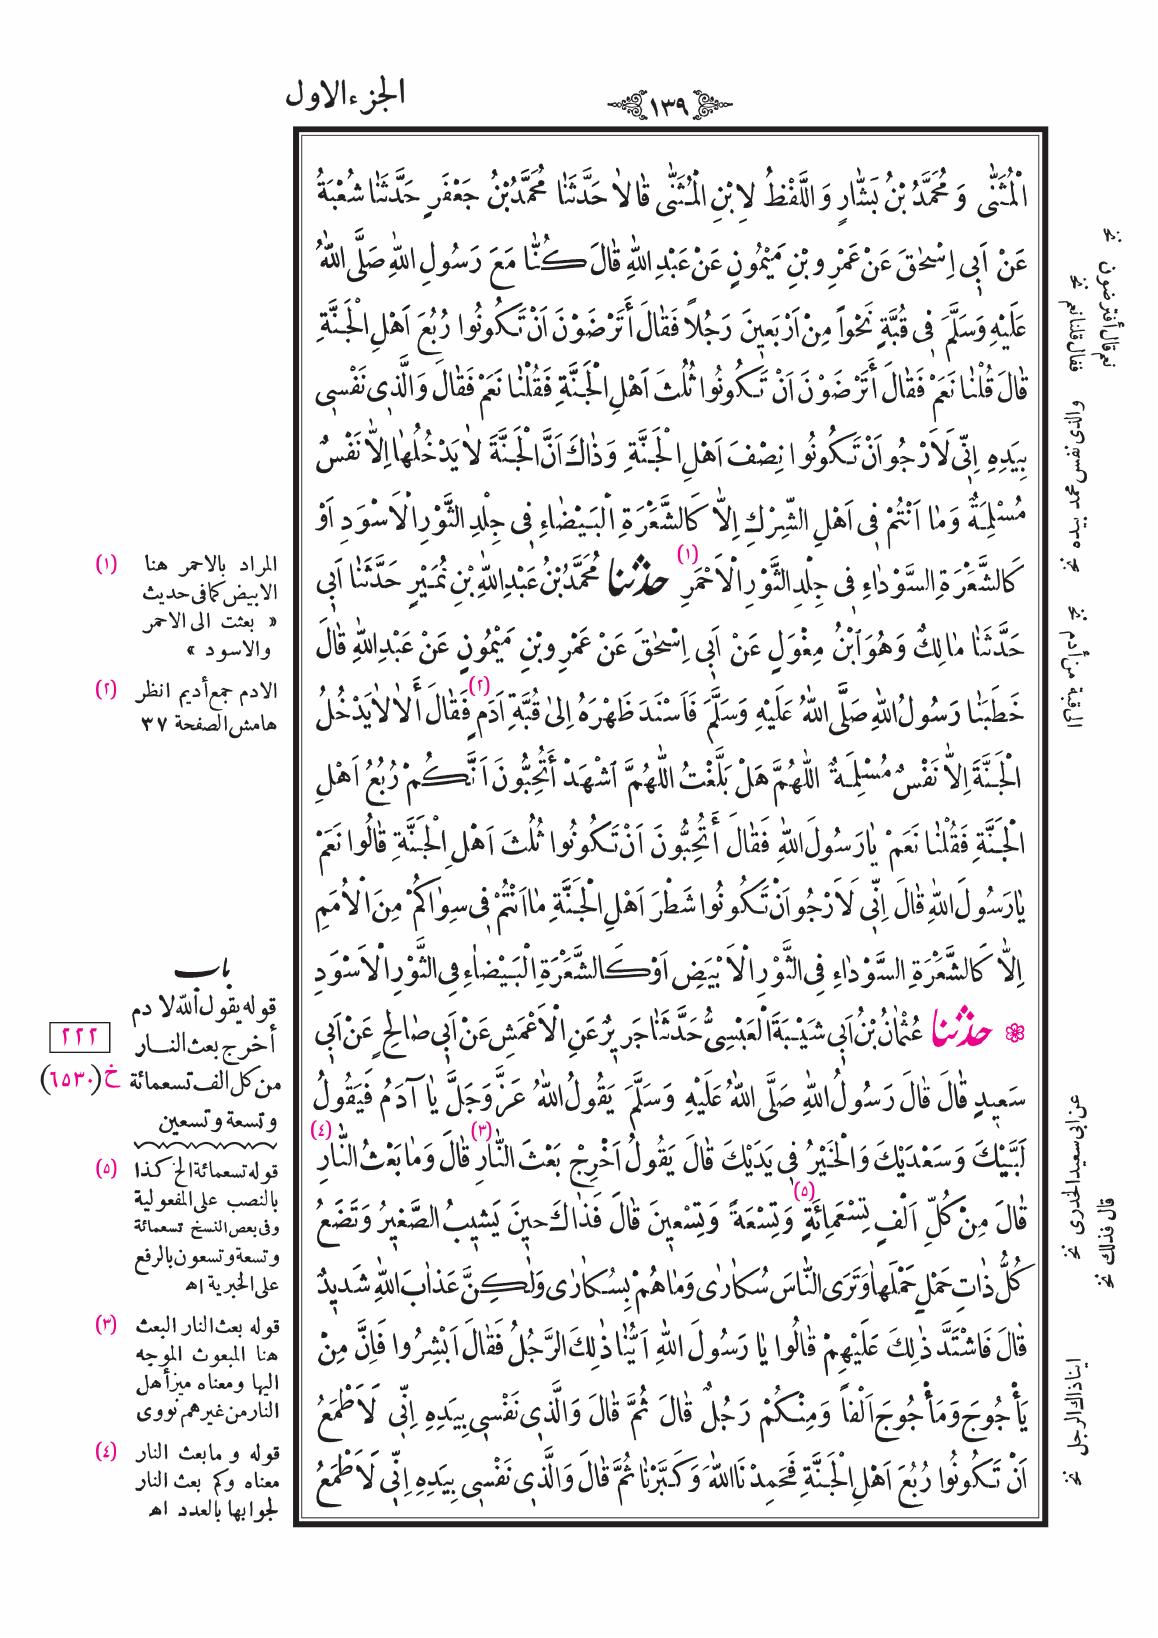 الجزء الاول
١٣٩
الْمُثَنّٰى وَ مُحَمَّدُ بْنُ بَشَّارٍ وَ اللَّفْظُ لِابْنِ الْمُثَنّٰى قَالَا حَدَّثَنَا مُحَمَّدُ بْنُ جَعْفَرٍ حَدَّثَنَا شُعْبَةُ
عَنْ اَبِى اِسْحٰقَ عَنْ عَمْرِو بْنِ مَيْمُونٍ عَنْ عَبْدِ اللّٰهِ قَالَ كُنَّا مَعَ رَسُولِ اللّٰهِ صَلَّى اللّٰهُ
عَلَيْهِ وَسَلَّمَ فِى قُبَّةٍ نَحْواً مِنْ اَرْبَعِينَ رَجُلاً فَقَالَ أَتَرْضَوْنَ اَنْ تَكُونُوا رُبُعَ اَهْلِ الْجَنَّةِ
قَالَ قُلْنَا نَعَمْ فَقَالَ أَتَرْضَوْنَ اَنْ تَكُونُوا ثُلُثَ اَهْلِ الْجَنَّةِ فَقُلْنَا نَعَمْ فَقَالَ وَالَّذِى نَفْسِى
بِيَدِهِ اِنِّى لَاَرْجُو اَنْ تَكُونُوا نِصْفَ اَهْلِ الْجَنَّةِ وَذَاكَ اَنَّ الْجَنَّةَ لَا يَدْخُلُهَا اِلَّا نَفْسٌ
مُسْلِمَةٌ وَمَا اَنْتُمْ فِى اَهْلِ الشِّرْكِ اِلَّا كَالشَّعْرَةِ الْبَيْضَاءِ فِى جِلْدِ الثَّوْرِ الْاَسْوَدِ اَوْ
كَالشَّعْرَةِ السَّوْدَاءِ فِى جِلْدِ الثَّوْرِ الْاَحْمَرِ (١) حدثنا مُحَمَّدُ بْنُ عَبْدِ اللّٰهِ بْنِ نُمَيْرٍ حَدَّثَنَا اَبِى
حَدَّثَنَا مَالِكٌ وَهُوَ ابْنُ مِغْوَلٍ عَنْ اَبِى اِسْحٰقَ عَنْ عَمْرِو بْنِ مَيْمُونٍ عَنْ عَبْدِ اللّٰهِ قَالَ
خَطَبَنَا رَسُولُ اللّٰهِ صَلَّى اللّٰهُ عَلَيْهِ وَسَلَّمَ فَاَسْنَدَ ظَهْرَهُ اِلٰى قُبَّةِ اَدَمٍ (٢) فَقَالَ أَلَا لَا يَدْخُلُ
الْجَنَّةَ اِلَّا نَفْسٌ مُسْلِمَةٌ اَللّٰهُمَّ هَلْ بَلَّغْتُ اَللّٰهُمَّ اشْهَدْ أَتُحِبُّونَ اَنَّكُمْ رُبُعُ اَهْلِ
الْجَنَّةِ فَقُلْنَا نَعَمْ يَا رَسُولَ اللّٰهِ فَقَالَ أَتُحِبُّونَ اَنْ تَكُونُوا ثُلُثَ اَهْلِ الْجَنَّةِ قَالُوا نَعَمْ
يَا رَسُولَ اللّٰهِ قَالَ اِنِّى لَاَرْجُو اَنْ تَكُونُوا شَطْرَ اَهْلِ الْجَنَّةِ مَا اَنْتُمْ فِى سِوَاكُمْ مِنَ الْاُمَمِ
اِلَّا كَالشَّعْرَةِ السَّوْدَاءِ فِى الثَّوْرِ الْاَبْيَضِ اَوْ كَالشَّعْرَةِ الْبَيْضَاءِ فِى الثَّوْرِ الْاَسْوَدِ
حدثنا عُثْمَانُ بْنُ اَبِى شَيْبَةَ الْعَبْسِىُّ حَدَّثَنَا جَرِيرٌ عَنِ الْاَعْمَشِ عَنْ اَبِى صَالِحٍ عَنْ اَبِى
سَعِيدٍ قَالَ قَالَ رَسُولُ اللّٰهِ صَلَّى اللّٰهُ عَلَيْهِ وَسَلَّمَ يَقُولُ اللّٰهُ عَزَّ وَجَلَّ يَا آدَمُ فَيَقُولُ
لَبَّيْكَ وَسَعْدَيْكَ وَالْخَيْرُ فِى يَدَيْكَ قَالَ يَقُولُ اَخْرِجْ بَعْثَ النَّارِ (٣) قَالَ وَمَا بَعْثُ النَّارِ (٤)
قَالَ مِنْ كُلِّ اَلْفٍ تِسْعَمِائَةٍ (٥) وَتِسْعَةً وَتِسْعِينَ قَالَ فَذَاكَ حِينَ يَشِيبُ الصَّغِيرُ وَتَضَعُ
كُلُّ ذَاتِ حَمْلٍ حَمْلَهَا وَتَرَى النَّاسَ سُكَارٰى وَمَا هُمْ بِسُكَارٰى وَلٰكِنَّ عَذَابَ اللّٰهِ شَدِيدٌ
قَالَ فَاشْتَدَّ ذٰلِكَ عَلَيْهِمْ قَالُوا يَا رَسُولَ اللّٰهِ اَيُّنَا ذٰلِكَ الرَّجُلُ فَقَالَ اَبْشِرُوا فَاِنَّ مِنْ
يَأْجُوجَ وَمَأْجُوجَ اَلْفاً وَمِنْكُمْ رَجُلٌ قَالَ ثُمَّ قَالَ وَالَّذِى نَفْسِى بِيَدِهِ اِنِّى لَاَطْمَعُ
اَنْ تَكُونُوا رُبُعَ اَهْلِ الْجَنَّةِ فَحَمِدْنَا اللّٰهَ وَكَبَّرْنَا ثُمَّ قَالَ وَالَّذِى نَفْسِى بِيَدِهِ اِنِّى لَاَطْمَعُ
نعم قال أفترضون نخ
فقال قلنا نعم نخ
والذى نفس محمد بيده نخ
الى قبة من أدم نخ
عن ابى سعيد الخدرى نخ
قال فذلك نخ
اينا ذاك الرجل نخ
(١) المراد بالاحمر هنا
الابيض كما فى حديث
« بعثت الى الاحمر
والاسود »
(٢) الادم جمع أديم انظر
هامش الصفحة ٣٧
باب
قوله يقول الله لآدم
٢٢٢
أخرج بعث النار
خ (٦٥٣٠)
من كل الف تسعمائة
وتسعة وتسعين
(٥) قوله تسعمائة الخ كذا
بالنصب على المفعولية
وفى بعض النسخ تسعمائة
وتسعة وتسعون بالرفع
على الخبرية اه
(٣) قوله بعث النار البعث
هنا المبعوث الموجه
اليها ومعناه ميز أهل
النار من غيرهم نووى
(٤) قوله وما بعث النار
معناه وكم بعث النار
لجوابها بالعدد اه